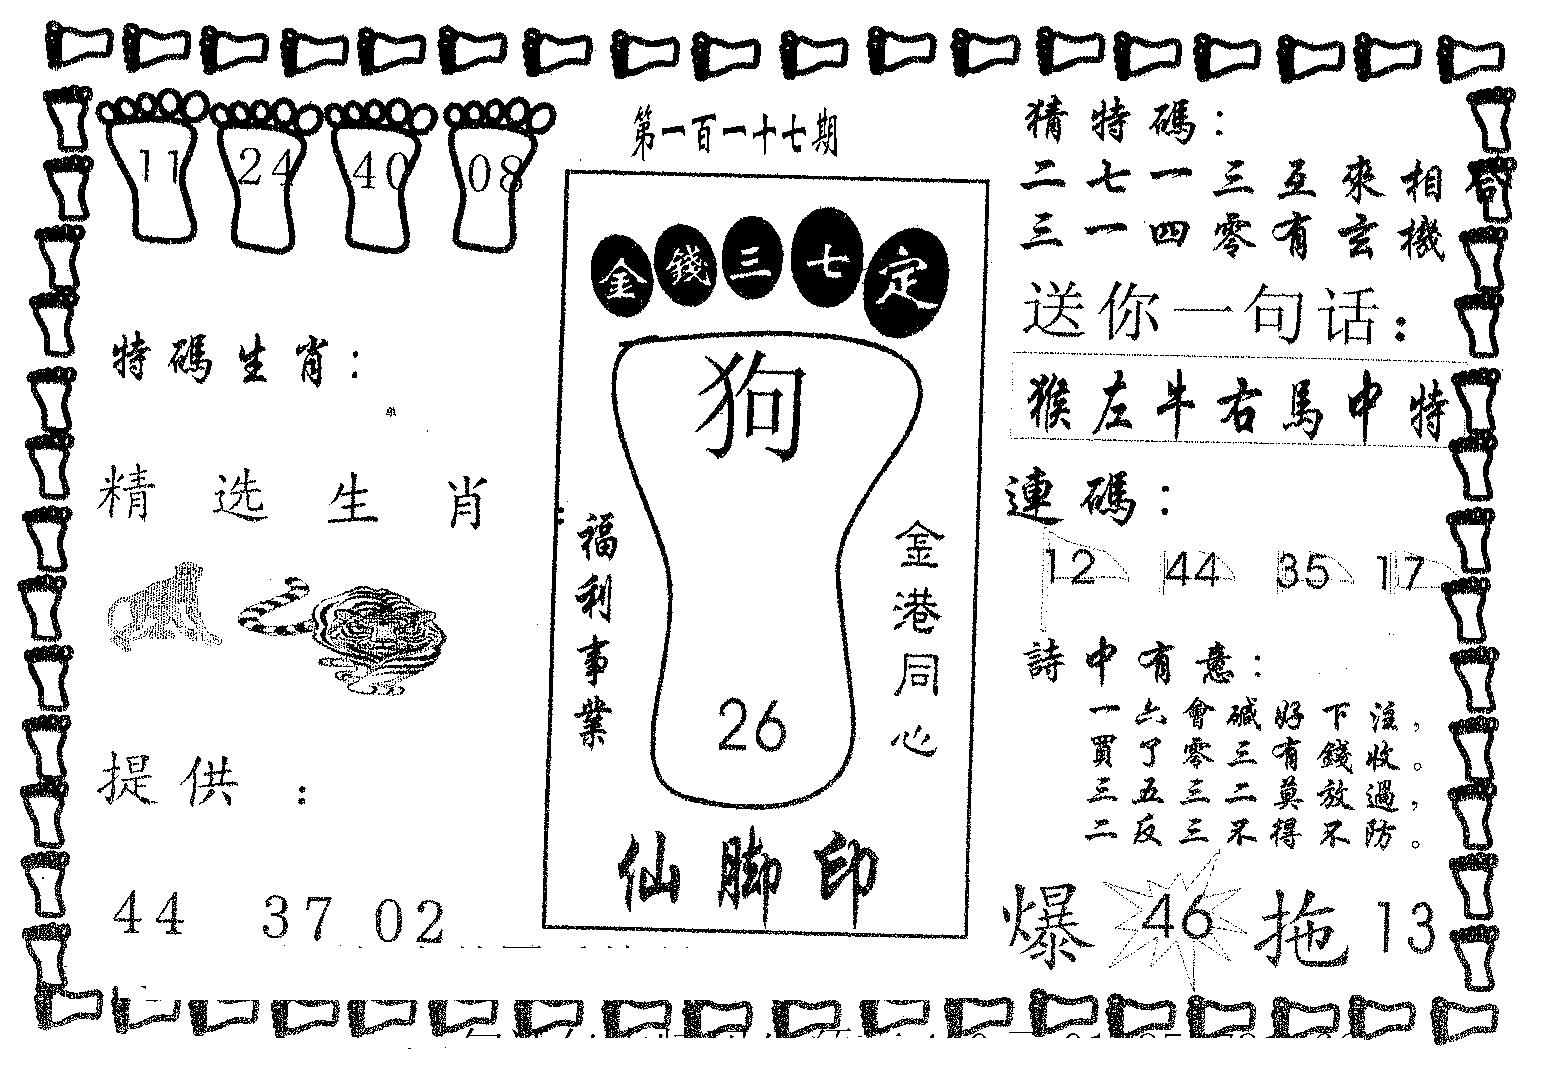 第一百一十七期
11 24 40 08
特碼生肖：
精选生肖
提供：
44 37 02
金錢三七定
狗
福利事業
金港同心
26
仙脚印
猜特碼：
二七一三互來相
三一四零有玄機
送你一句话：
猴左牛右馬中特
連碼：
12 44 35 17
詩中有意：
一六會碱好下注，
買了零三有錢收。
三五三二莫放過，
二反三不得不防。
爆 46 拖 13